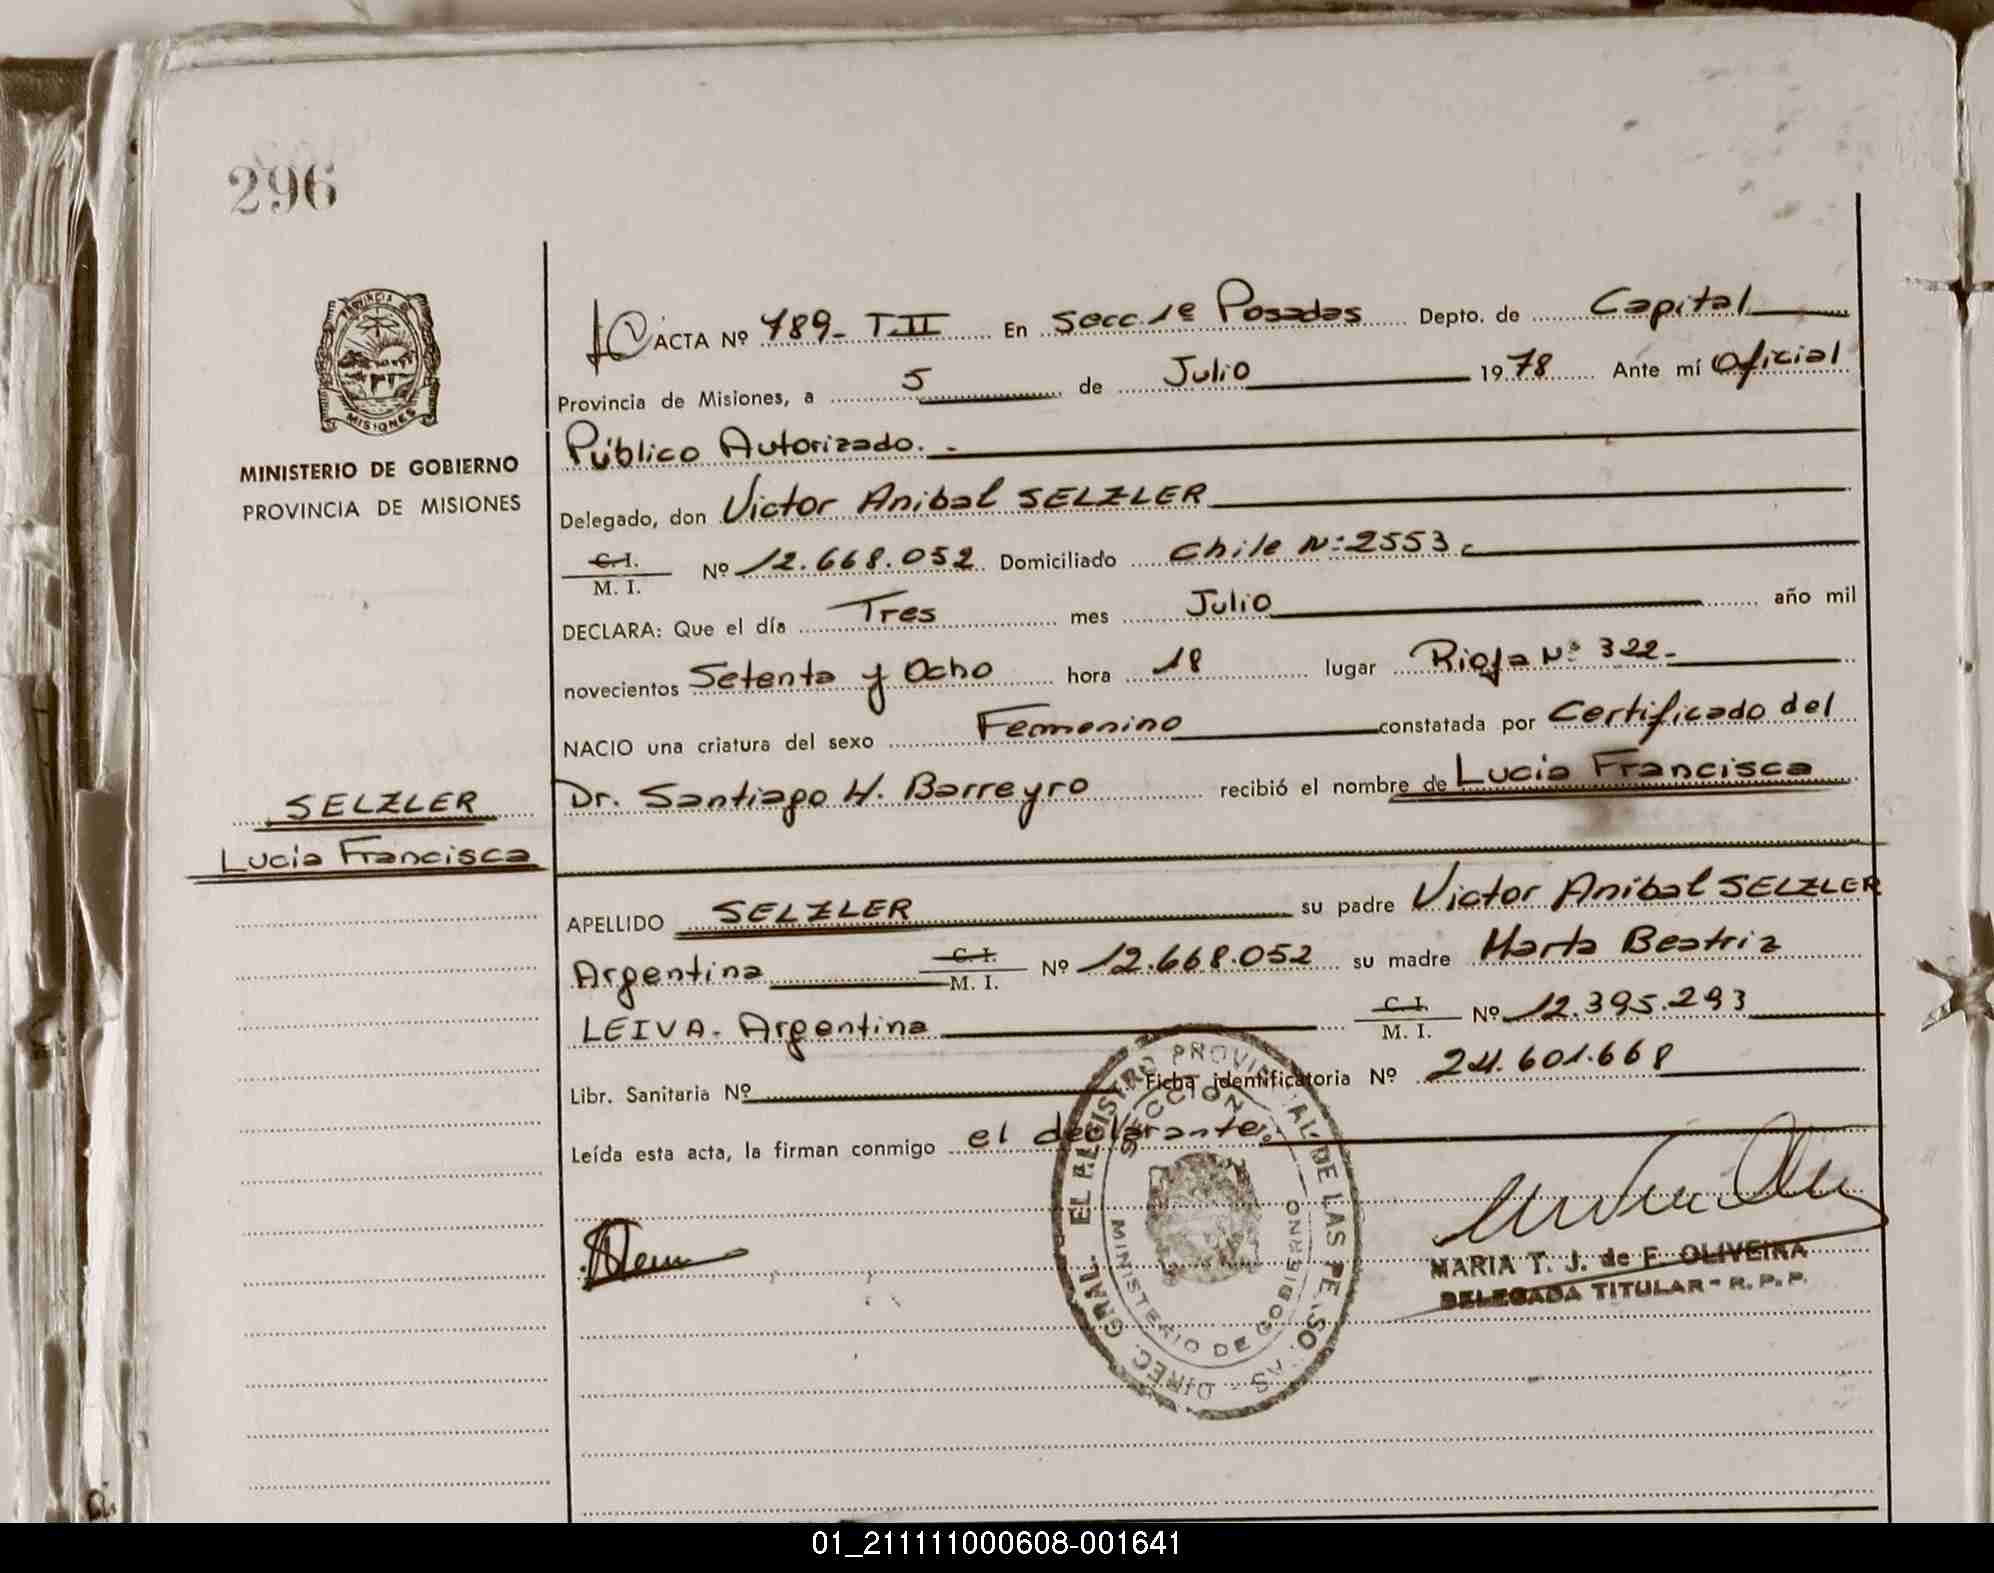 296
PROVINCIA DE
MISIONES
MINISTERIO DE GOBIERNO
PROVINCIA DE MISIONES
ACTA Nº 789- T.II En Secc. 1º Posadas Depto. de Capital
Provincia de Misiones, a 5 de Julio 1978 Ante mí Oficial
Público Autorizado.-
Delegado, don Victor Anibal SELZLER
C. I.
M. I. Nº 12.668.052 Domiciliado Chile Nº 2553.
DECLARA: Que el día Tres mes Julio año mil
novecientos Setenta y Ocho hora 18 lugar Rioja Nº 322-
NACIO una criatura del sexo Femenino constatada por Certificado del
SELZLER
Lucia Francisca
Dr. Santiago H. Barreyro recibió el nombre de Lucia Francisca
APELLIDO SELZLER su padre Victor Anibal SELZLER
Argentina C. I. M. I. Nº 12.668.052 su madre Marta Beatriz
LEIVA. Argentina C. I. M. I. Nº 12.395.293
Libr. Sanitaria Nº Ficha identificatoria Nº 24.601.668
Leída esta acta, la firman conmigo el declarante.
DIREC. GRAL. EL REGISTRO PROVINCIAL DE LAS PERSONAS
SECCION
MINISTERIO DE GOBIERNO
MARIA T. J. de F. OLIVEIRA
DELEGADA TITULAR - R. P. P.
01_211111000608-001641